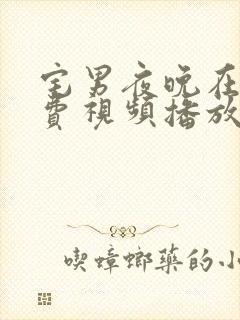 宅男夜晚在
費視頻播放
喫蟑螂藥的小